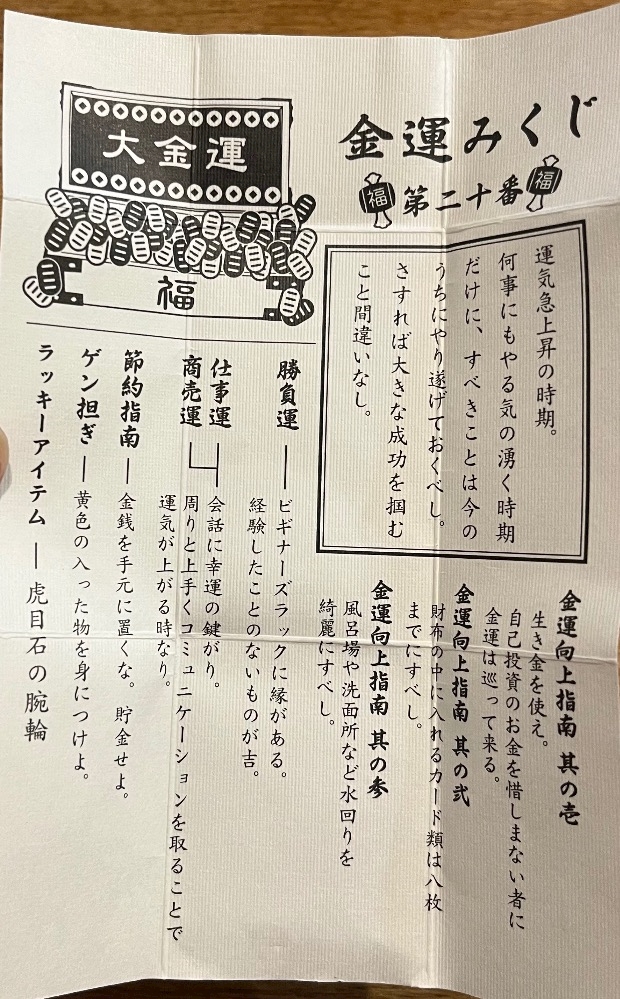 金運みくじ
福
第二十番
福
大金運
福
運気急上昇の時期。
何事にもやる気の湧く時期
だけに、すべきことは今の
うちにやり遂げておくべし。
さすれば大きな成功を掴む
こと間違いなし。
金運向上指南 其の壱
生き金を使え。
自己投資のお金を惜しまない者に
金運は巡って来る。
金運向上指南 其の弐
財布の中に入れるカード類は八枚
までにすべし。
金運向上指南 其の参
風呂場や洗面所など水回りを
綺麗にすべし。
勝負運
ビギナーズラックに縁がある。
経験したことのないものが吉。
仕事運
商売運
会話に幸運の鍵がり。
周りと上手くコミュニケーションを取ることで
運気が上がる時なり。
節約指南
金銭を手元に置くな。貯金せよ。
ゲン担ぎ
黄色の入った物を身につけよ。
ラッキーアイテム
虎目石の腕輪